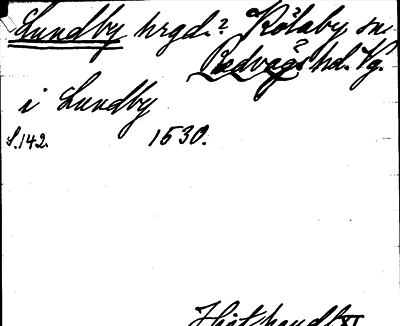 Lundby hrgd.? Kölaby sn
Redvägs hd. Vg.
i Lundby
S.142. 1530.
Hist. handl. XI